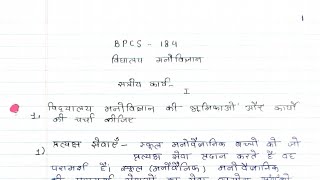 1
BPCS - 184
विद्यालय मनोविज्ञान
सत्रीय कार्य-
I
1, विद्यालय मनोविज्ञान की भूमिकाओं और कार्यों
की चर्चा कीजिए
1) प्रत्यक्ष सेवाएँ - स्कूल मनोवैज्ञानिक बच्चों को जो
प्रत्यक्ष सेवा प्रदान करते हैं वह
परामर्श है। स्कूल (मनोवैज्ञनिक) मनोवैज्ञानिक